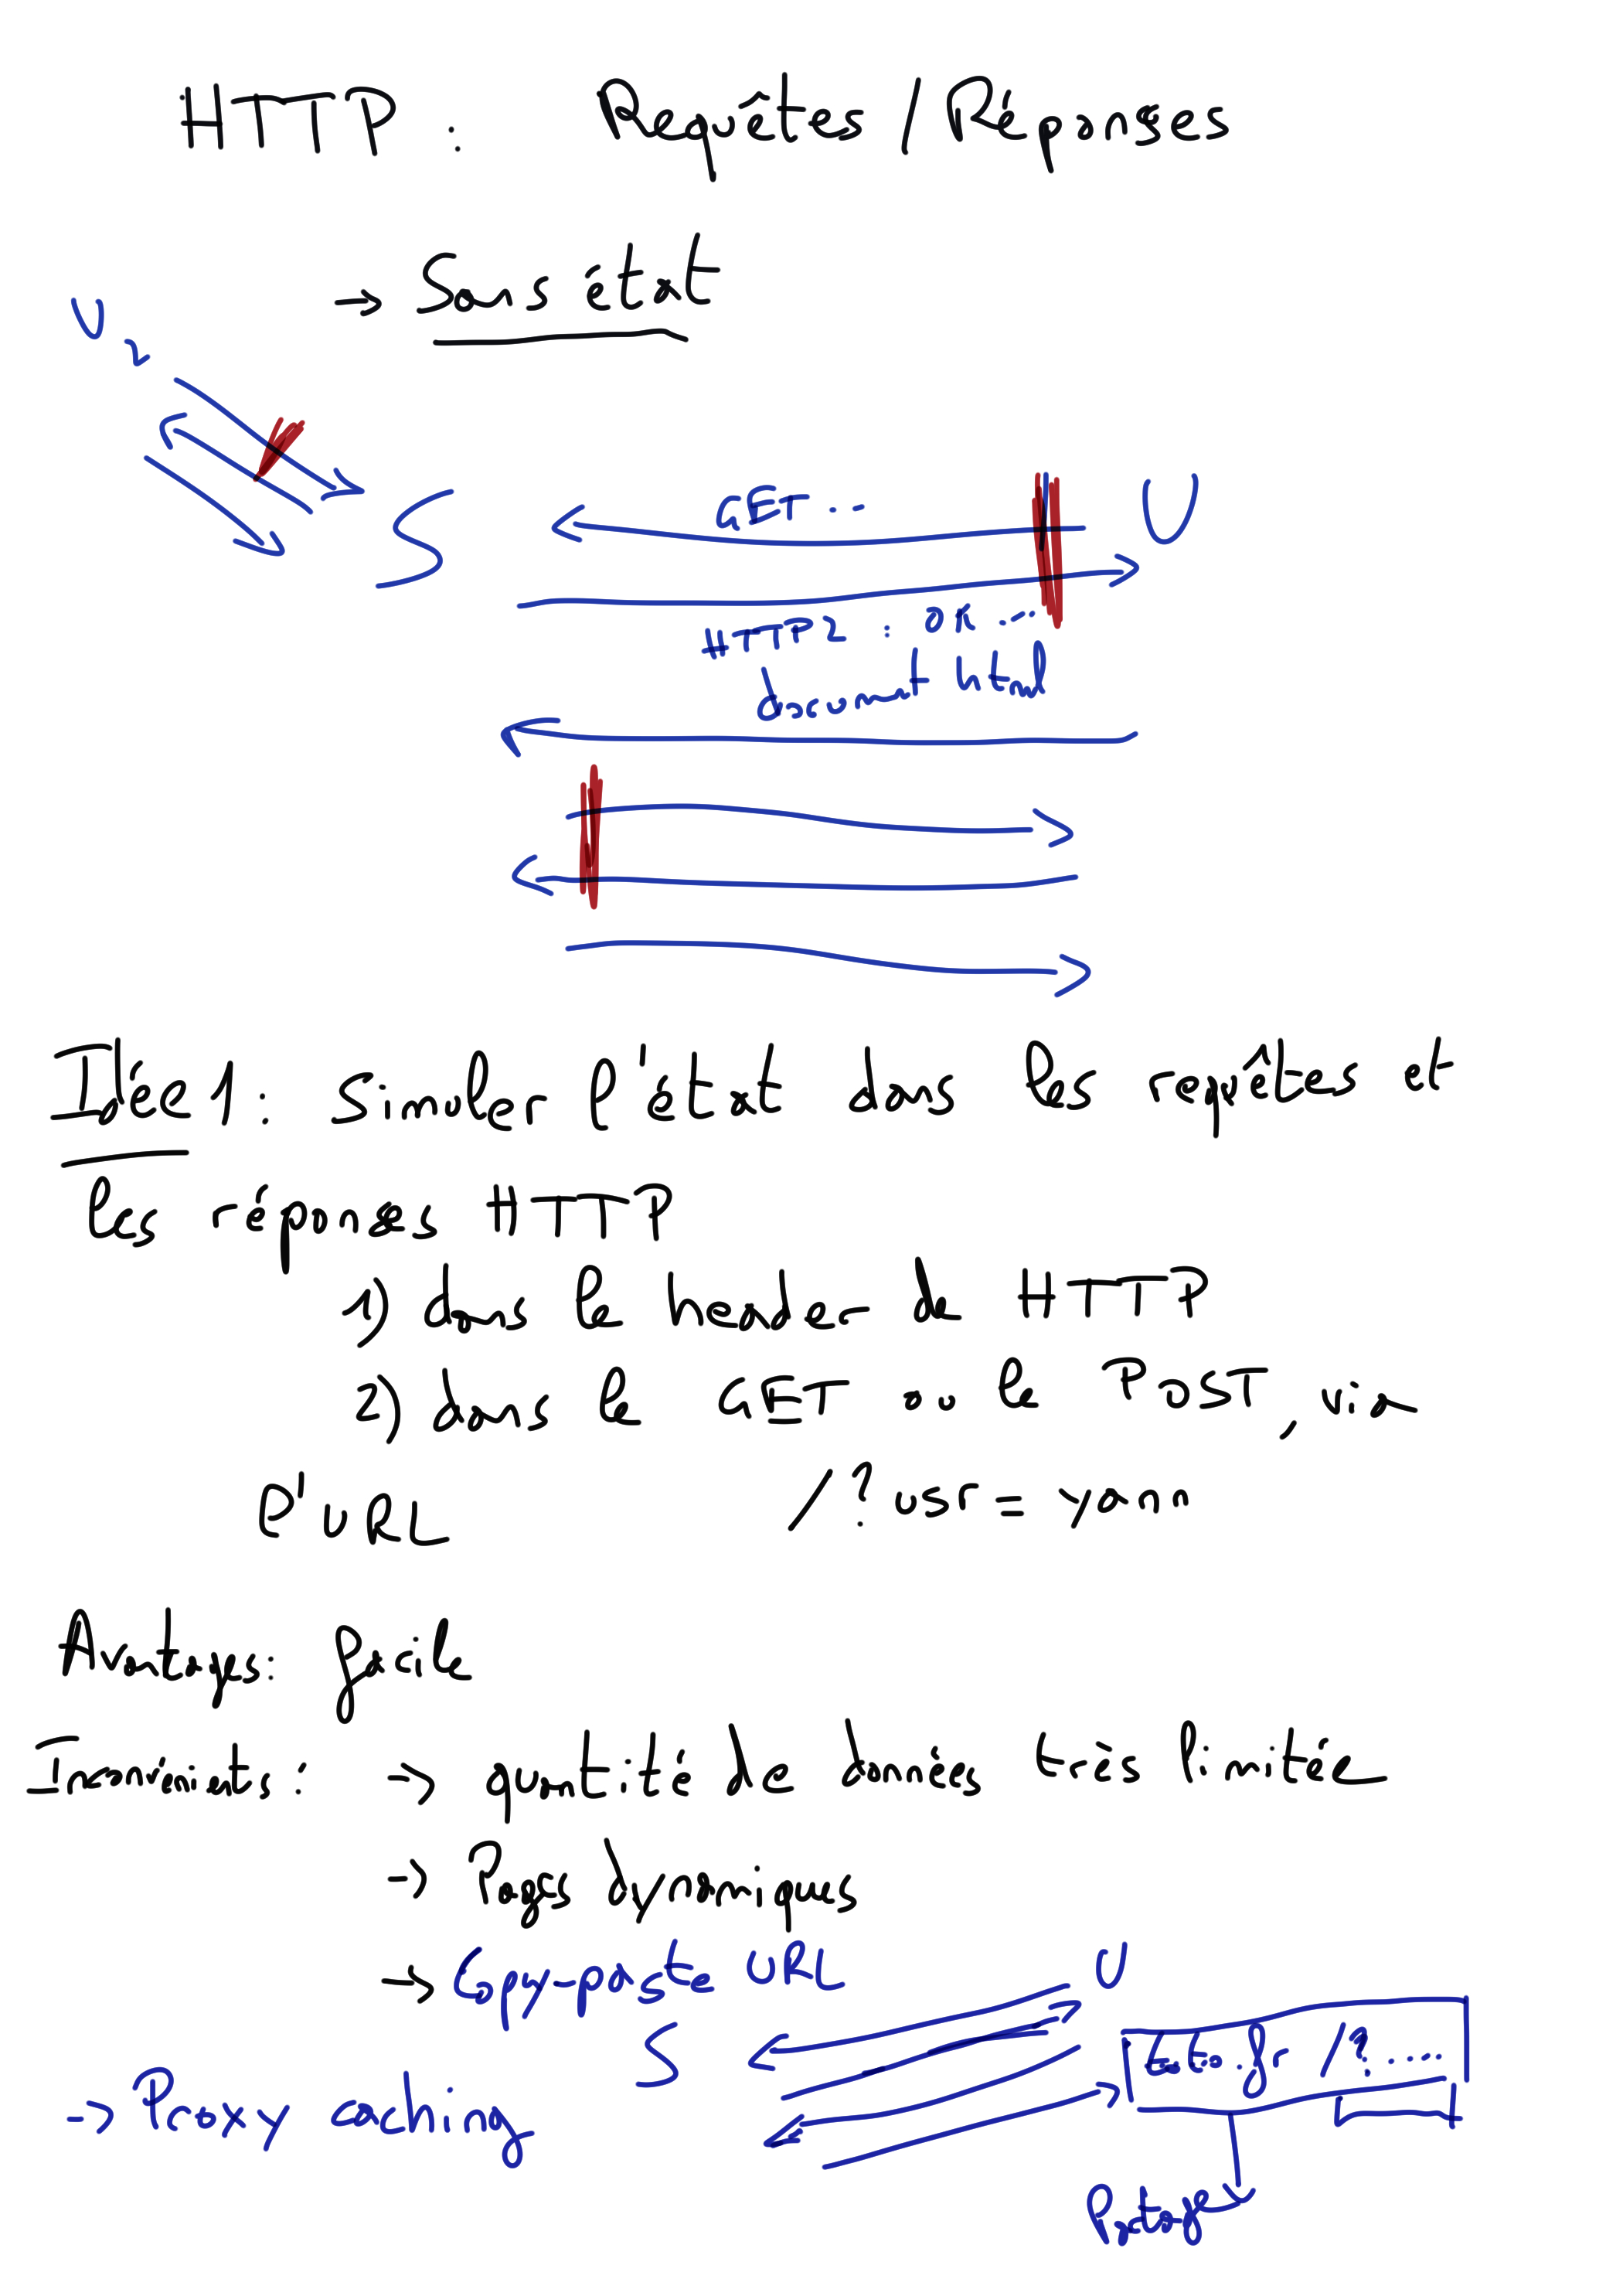 HTTP : Requêtes / Réponses
→ Sans état
U2
S
GET ...
U
HTTP2 : OK ...
document html
Idée 1 : simuler l'état dans les requêtes et
les réponses HTTP
1) dans le header de HTTP
2) dans le GET ou le POST, via
l'URL /?usr=yann
Avantages: facile
Inconvénients : → quantité de données très limitée
→ Pages dynamiques
→ Copy-paste URL
U
S
→ Proxy caching
Partage